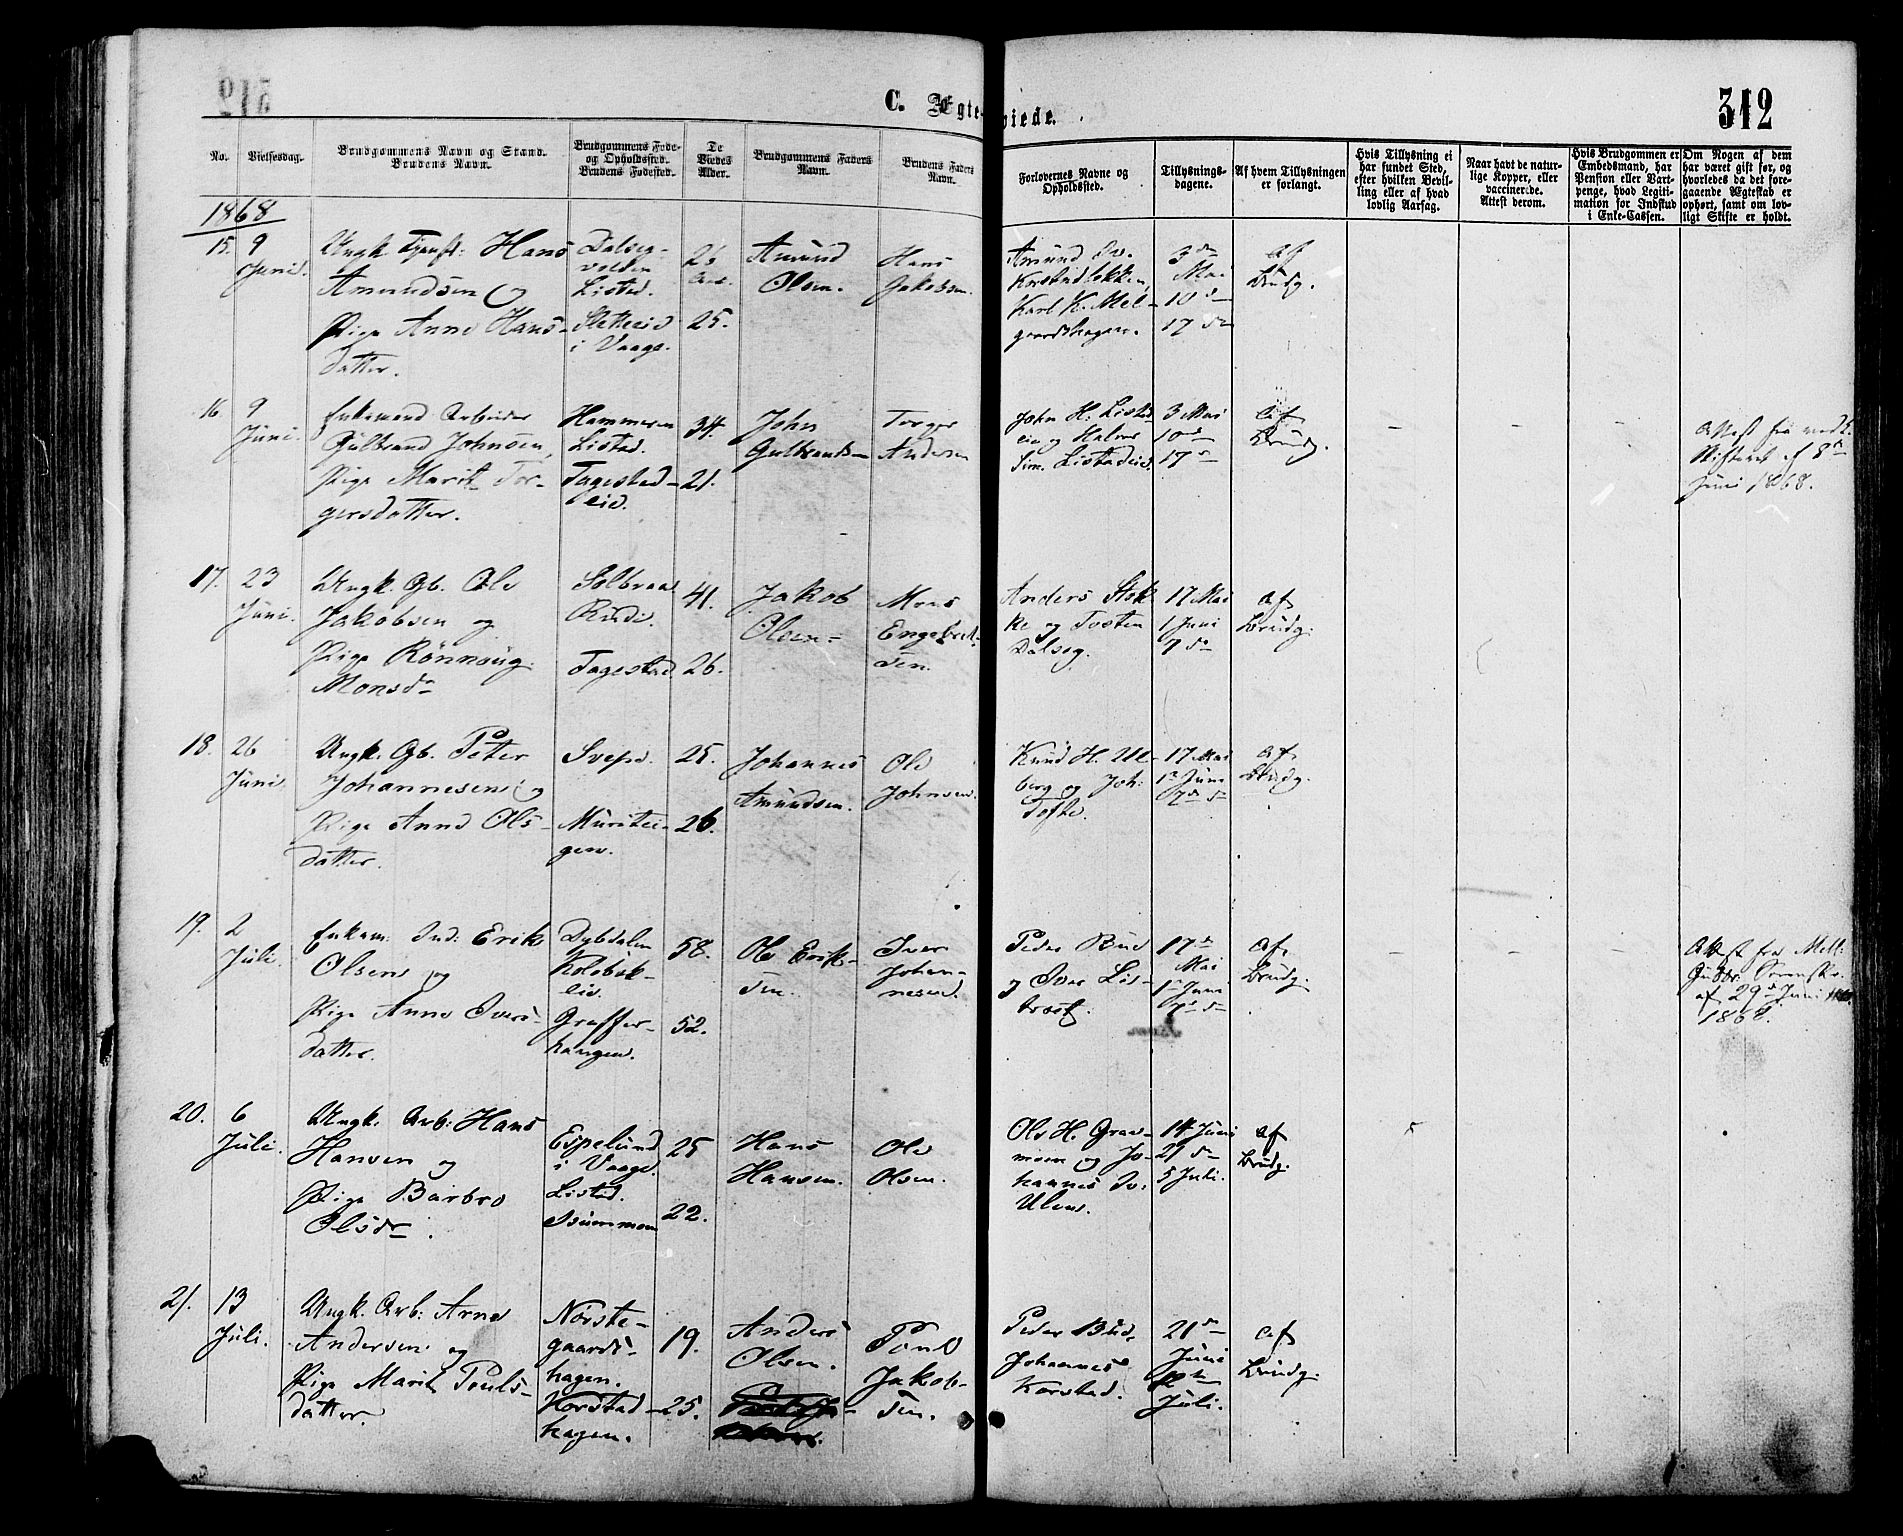 312
C. Ægteviede.
No.
Vielsesdag.
Brudgommens Navn og Stand.
Brudens Navn.
Brudgommens Føde-
og Opholdssted.
Brudens Fødested.
De
Viedes
Alder.
Brudgommens Faders
Navn.
Brudens Faders
Navn.
Forlovernes Navne og
Opholdssted.
Tillysnings-
dagene.
Af hvem Tillysningen
er forlangt.
Hvis Tillysning ei
har fundet Sted,
efter hvilken Bevil-
ling eller af hvad
lovlig Aarsag.
Naar havt de natur-
lige Kopper, eller
vaccinerede.
Attest derom.
Hvis Brudgommen er
Embedsmand, har
Pension eller Vart-
penge, hvad Legiti-
mation for Indskud
i Enke-Cassen.
Om Nogen af dem
har været gift før, og
hvorledes da det fore-
gaaende Ægteskab er
ophørt, samt om lov-
ligt Skifte er holdt.
1868
15.
9
Juni.
Ungk. Tjenst: Hans
Amundsen og
Pige Anne Hans-
datter.
Dalseg-
volden
Listad.
Sletteeid
i Vaage.
26
Aar.
25.
Amund
Olsen.
Hans
Jakobsen.
Amund
Karl K. Mel-
gaardshagen.
3 de
Mai
10 d
17 de
af
Brudg.
16.
9
Juni.
Enkemand Arbeider
Gulbrand Johnsen,
Pige Marit Tor-
gersdatter.
Hammeren
Listad.
Tagestad-
eid.
34.
21.
John
Gulbrands-
Torger
Andersen
John H. Listad
eie og Halvor
Sim. Listadeid.
3 Mai
10 de
17 d
af
Brudg.
-
-
-
Attest fra vedk.
Skifteret af 8 de
Juni 1868.
17.
23
Juni.
Ungk. Gb. Ole
Jakobsen og
Pige Rönnoug
Monsdr
Solbraa
Rudi.
Tagestad
41.
26.
Jakob
Olsen-
Mons
Engebret-
sen.
Anders Stok
ke og Tosten
Dalseg.
17 Mai
1 Juni
7 de
af
Brudg.
18.
26
Juni
Ungk. Gb. Peter
Johannesens og
Pige Anne Ols-
datter.
Svepe.
Muritei-
gen.
25.
26.
Johannes
Amundsen.
Ole
Johnsen.
Knud H. Ul-
berg og Joh:
Tofte.
17 Mai
1 Juni
7 de
af
Brudg.
19.
2
Juli.
Enkem: Ind: Erik
Olsens og
Pige Anne Ivers-
datter.
Dybdalen
Graffer-
haugen.
58.
52.
Ole Erik-
sen.
Iver
Johan-
nesen.
Peder Bud
og Iver Lis-
17 de
Mai
1 Juni
7 de
af
Brudg.
-
-
-
Attest fra Mell:
Gudbr. Sorenskr.
af 29 de Juni
1868.
20.
6
Juli.
Ungk. Arb: Hans
Hansen og
Pige Barbro
Olsdr.
Espelund
i Vaage.
Listad.
Isummoen
25
22.
Hans
Hansen.
Ole
Olsen.
Ole H. Grav-
moen og Jo-
hannes
Ulen.
14 Juni
21 de
5 Juli.
af
Brudg.
21.
13
Juli.
Ungk. Arb: Arne
Andersen og
Pige Marit Pouls-
datter.
Nörste-
gaards-
hagen.
Korstad-
hagen.
19.
25.
Anders
Olsen.
Poul
Jakob-
sen.
Peder Bud.
Johannes
Korstad.
21 de
Juni
Juli.
af
Brudg.